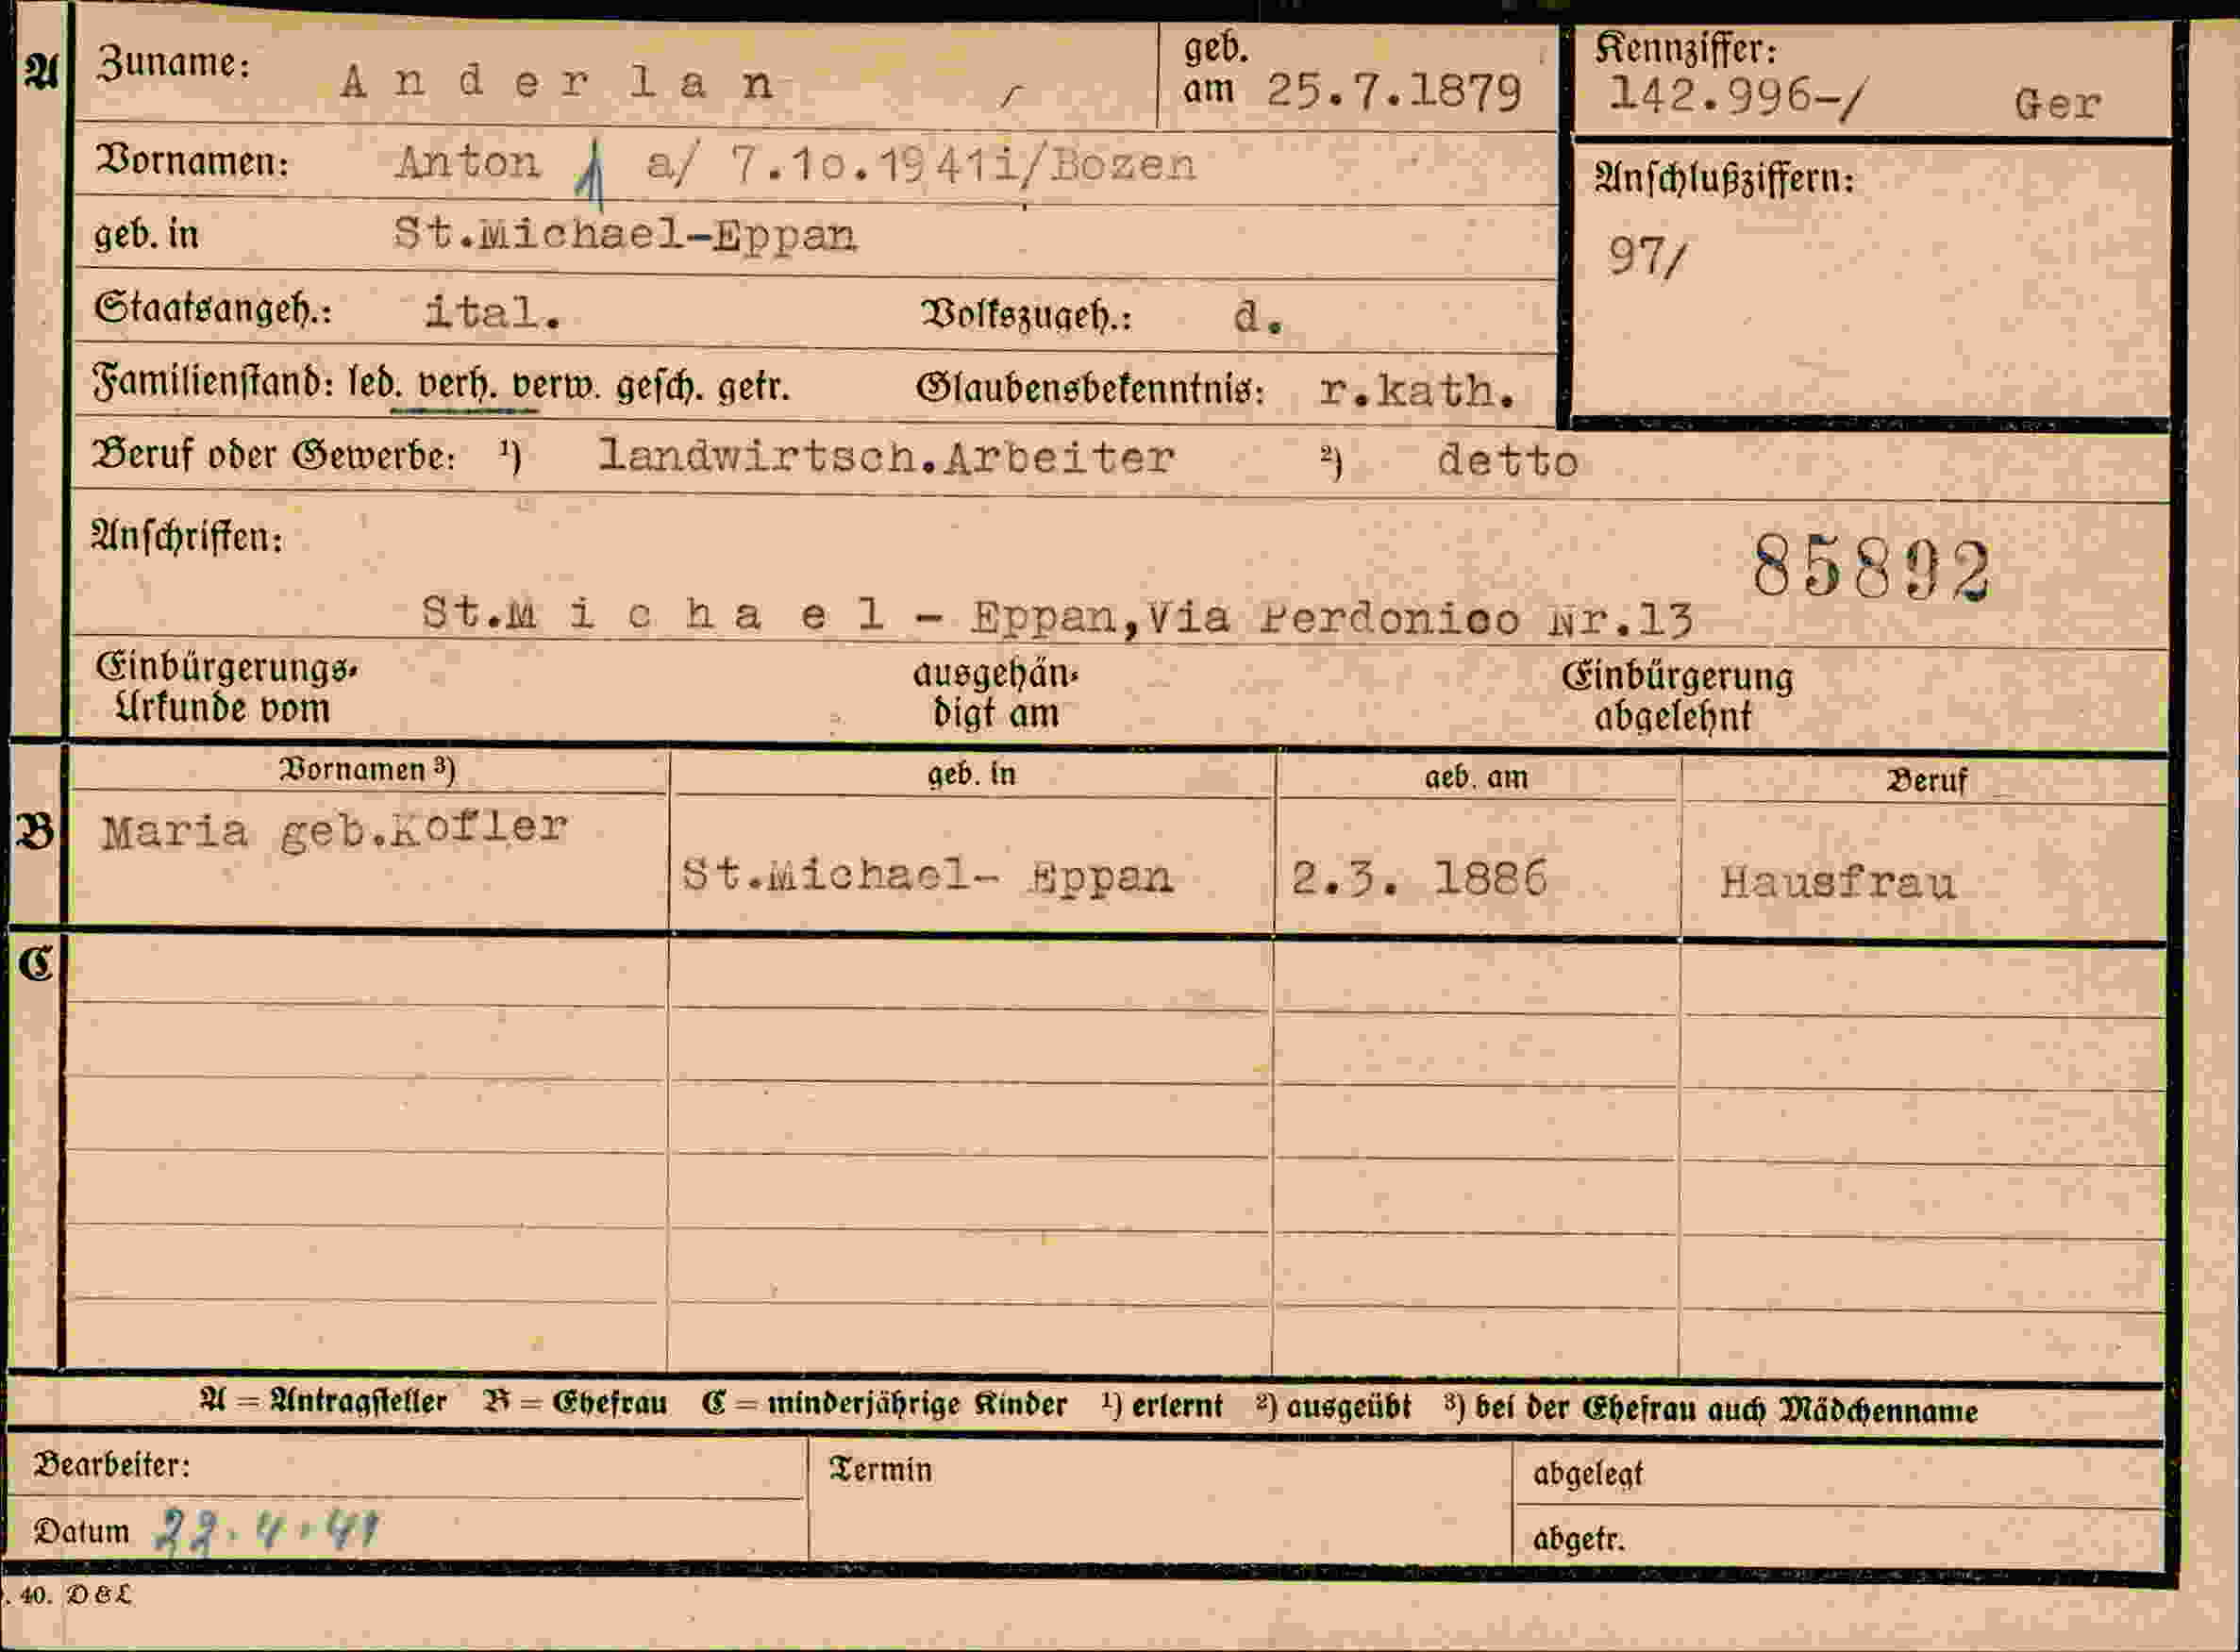 A Zuname: Anderlan geb. am 25.7.1879 Kennziffer: 142.996-/ Ger
Vornamen: Anton a/ 7.10.1941i/Bozen Anschlußziffern:
geb. in St.Michael-Eppan 97/
Staatsangeh.: ital. Volkszugeh.: d.
Familienstand: led. verh. verw. gesch. getr. Glaubensbekenntnis: r.kath.
Beruf oder Gewerbe: ¹) landwirtsch.Arbeiter ²) detto
Anschriften: 85892
St.Michael - Eppan,Via Perdonico Nr.13
Einbürgerungs- ausgehän- Einbürgerung
Urkunde vom digt am abgelehnt
Vornamen ³) geb. in geb. am Beruf
B Maria geb.Kofler
St.Michael- Eppan 2.3. 1886 Hausfrau
C
A = Antragsteller B = Ehefrau C = minderjährige Kinder ¹) erlernt ²) ausgeübt ³) bei der Ehefrau auch Mädchenname
Bearbeiter: Termin abgelegt
Datum 22.4.41 abgetr.
. 40. D&L